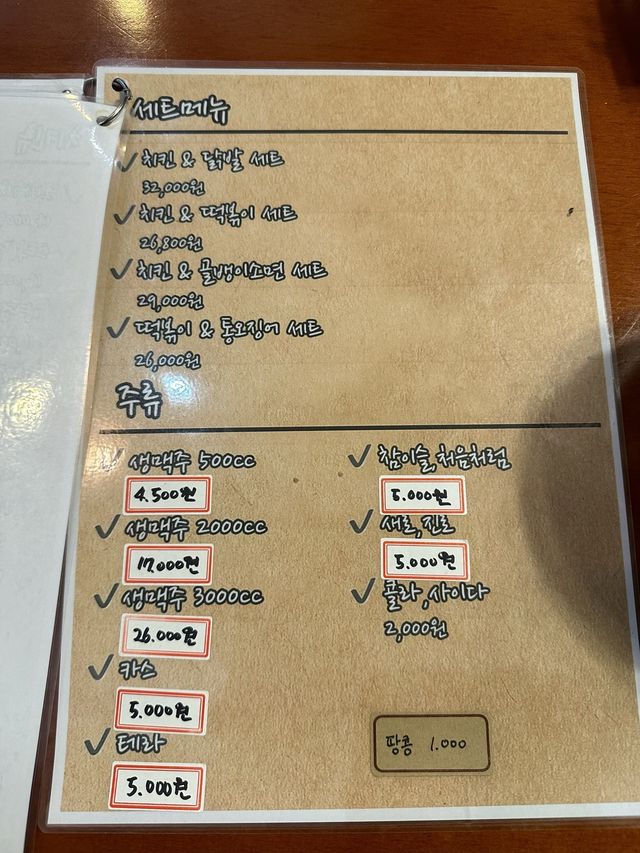 세트메뉴
치킨 & 닭발 세트
32,000원
치킨 & 떡볶이 세트
26,800원
치킨 & 골뱅이소면 세트
29,000원
떡볶이 & 통오징어 세트
26,000원
주류
생맥주 500cc
4.500원
생맥주 2000cc
17.000원
생맥주 3000cc
26.000원
카스
5.000원
테라
5.000원
참이슬, 처음처럼
5.000원
새로, 진로
5.000원
콜라, 사이다
2,000원
땅콩 1.000